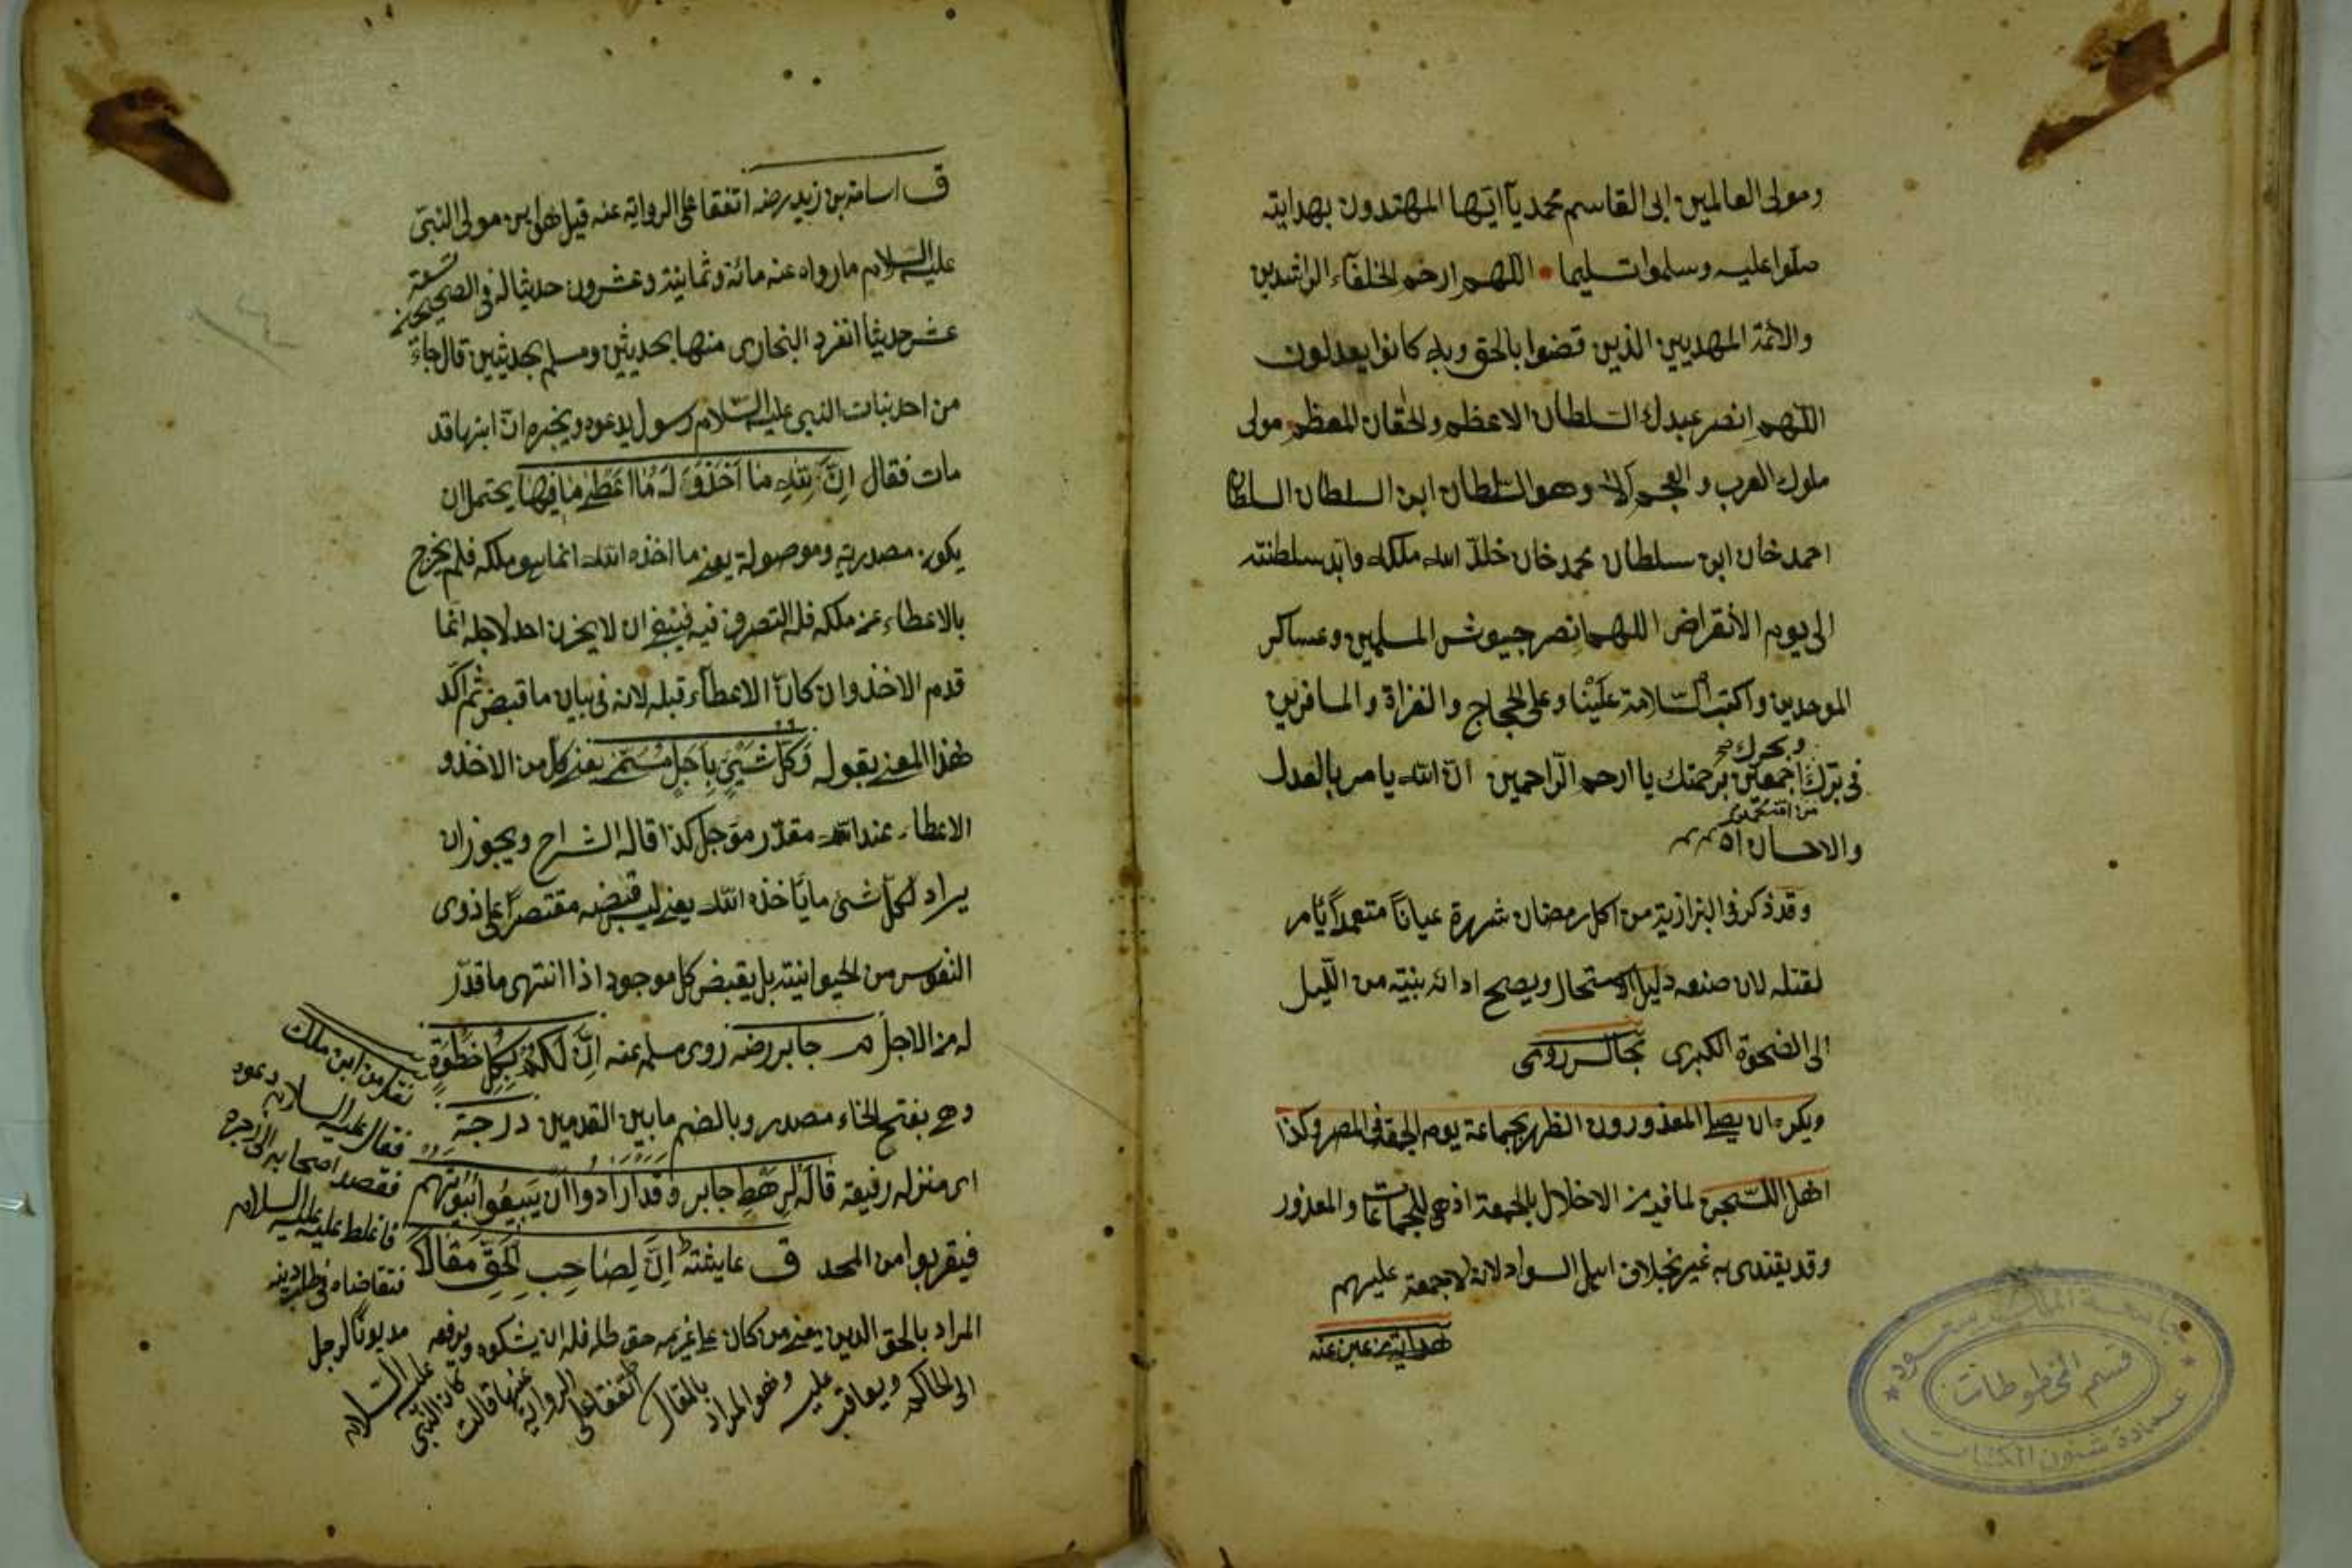 ومولى العالمين ابى القاسم محمد يآ ايّها المهتدون بهدايته
صلّوا عليه وسلموا تسليما اللّهم ارحم الخلفآء الراشدين
والائمة المهديين الذين قضوا بالحق وبه كانوا يعدلون
اللّهم انصر عبدك السّلطان الاعظم والخقان المعظم مولى
ملوك العرب والعجم وهو السّلطان ابن السلطان السلطان
احمد خان ابن سلطان محمد خان خلّد الله ملكه وابّد سلطنته
الى يوم الانقراض اللهم انصر جيوش المسلمين وعساكر
الموحدين واكتب السّلامة علينا وعلى الحجاج والغزاة والمسافرين
وبحرك
فى برّك اجمعين برحمتك يا ارحم الرّاحمين انّ الله يامر بالعدل
من امّة محمّد
والاحسان اه
وقد ذكر فى البزازية من اكل رمضان شهرة عياناً متعمداً يؤمر
لقتله لان صنعه دليل الاستحلال ويصح ادائه بنيّة من اللّيل
الى الضحوة الكبرى مجالس رومى
ويكره ان يصلى المعذورون الظهر بجماعة يوم الجمعة فى المصر وكذا
اهل السّجن لما فيه من الاخلال بالجمعة اذ هى للجماعات والمعذور
وقد يقتدى به غيره بخلاف اهل السواد لانه لا جمعة عليهم
هداية
ق اسامة بن زيد رضه اتفقا على الرواية عنه قيل هو ابن مولى النبى
عليه السلام ما رواه عنه مائة وثمانية وعشرون حديثا له فى الصحيحين تسعة
عشر حديثا انفرد البخارى منها بحديثين ومسلم بحديثين قال جاء
من احد بنات النبى عليه السّلام رسول يدعوه ويخبره انّ ابنها قد
مات فقال اِنَّ لِلّهِ مَا اَخَذَ وَلَهُ مَا اَعْطٰى ما فيها يحتمل ان
يكون مصدرية وموصولة يعنى ما اخذه الله انما هو ملكه فلم يخرج
بالاعطاء عن ملكه فله التصرف فيه فينبغى ان لا يحزن احد لاجله انّما
قدم الاخذ وان كان الاعطآء قبله لانه فى بيان ما قبض ثم اكّد
هذا المعنى بقوله وَكُلُّ شَيْئٍ بِاَجَلٍ مُسَمًّى يعنى كلّ من الاخذ و
الاعطاء عند الله مقدّر مؤجل كذا قاله الشارح ويجوز ان
يراد لكلّ شئ ما يأخذه الله يعنى ليس قبضه مقتصراً على ذوى
النفوس من الحيوانية بل يقبض كل موجود اذا انتهى ما قدّر
له من الاجل م جابر رضه روى مسلم عنه اِنَّ لَكُمْ بِكُلِّ خُطْوَةٍ
وهى بفتح الخاء مصدر وبالضم ما بين القدمين دَرَجَةً
اى منزلة رفيعة قاله لِرَهْطِ جابر وَقَدْ اَرَادُوا اَنْ يَبِيعُوا بُيُوتَهُمْ
فيقربوا من المسجد ق عايشة اِنَّ لِصَاحِبِ الْحَقِّ مَقَالاً
المراد بالحق الدين يعنى من كان على غريمه حق فله ان يشكوه ويرفعه
الى الحاكم ويعاقب عليه وهو المراد بالمقال اتفقا على الرواية عنها قالت كان النبى عليه السّلام
مديونًا لرجل
فتقاضاه
فاغلظ عليه عليه السلام
فقصد اصحابه الى زجره
فقال عليه السلام دعوه
نقل من ابن ملك
جامعة الملك سعود
قسم المخطوطات
عمادة شئون المكتبات